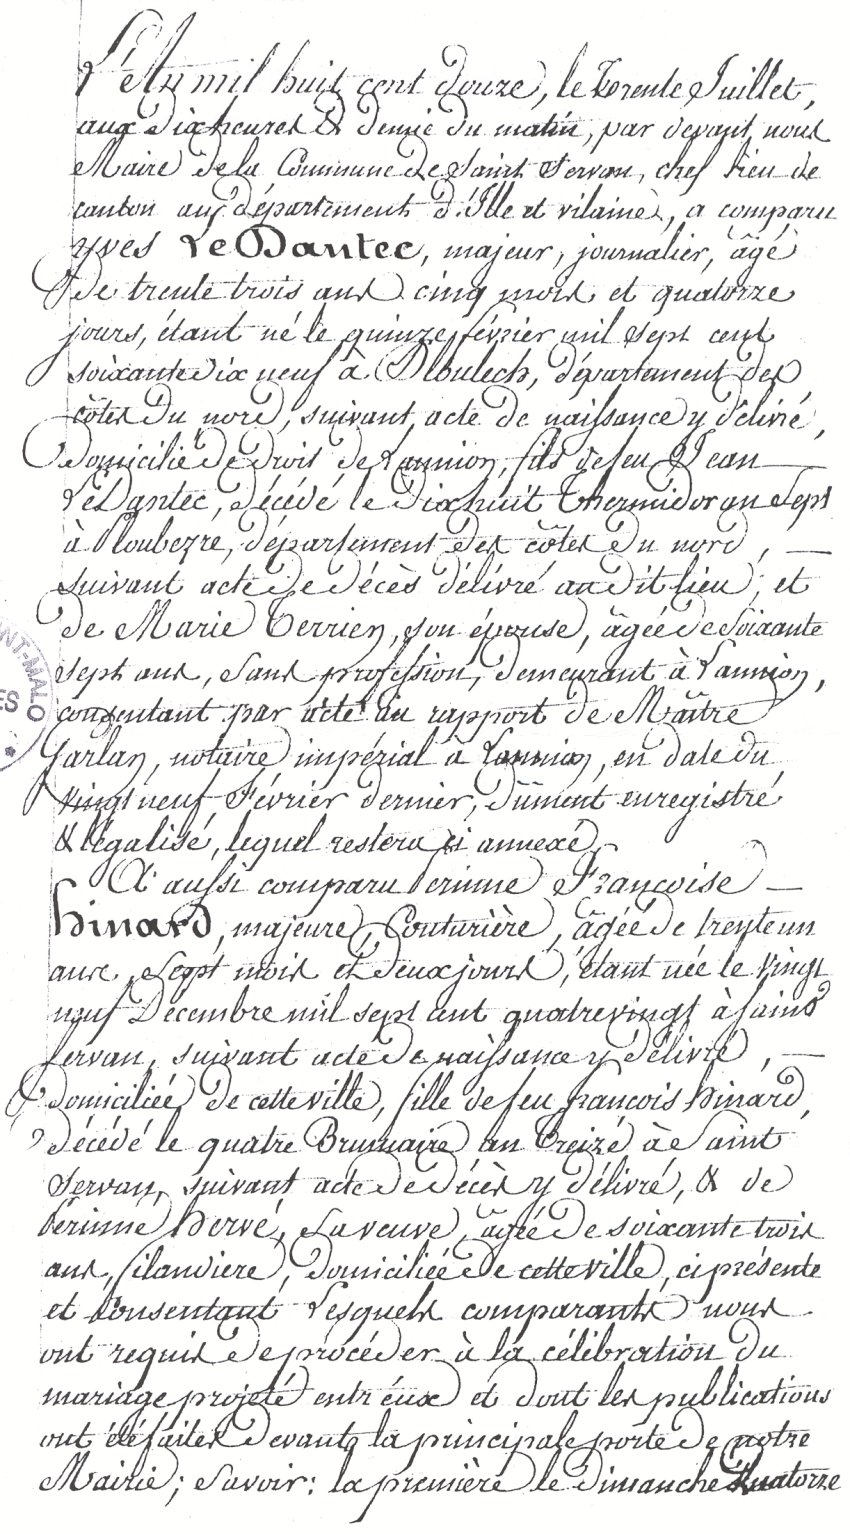 L'An mil huit cent douze, le Trente Juillet,
aux dix heures & demie du matin, par devant nous
Maire de la Commune de Saint Servan, chef lieu de
canton au département d'Ille et vilaine, a comparu
yves Le Dantec, majeur, journalier, âgé
de trente trois ans cinq mois et quatorze
jours, étant né le quinze février mil sept cent
soixante dix neuf à Ploulech, département des
côtes du nord, suivant acte de naissance y délivré,
domicilié de droit de Lannion, fils de feu Jean
Le Dantec, décédé le dix huit Thermidor an Sept
à Ploubezre, département des côtes du nord,
suivant acte de décès délivré au dit lieu, et
de Marie Terrien, son épouse, âgée de Soixante
sept ans, sans profession, demeurant à Lannion,
consentant par acte au rapport de Maître
Jarlan, notaire impérial à Lannion, en date du
vingt neuf Février dernier, dûment enregistré
& légalisé, lequel restera ci annexé.
A aussi comparu Perinne Françoise
hinard, majeure, Couturière, âgée de trente un
ans, Sept mois et deux jours, étant née le vingt
neuf Décembre mil sept cent quatre vingt à Saint
Servan, suivant acte de naissance y délivré,
domiciliée de cette ville, fille de feu françois hinard,
décédé le quatre Brumaire an Treize à Saint
Servan, suivant acte de décès y délivré, & de
Perinne hervé, Sa veuve, âgée de soixante trois
ans, filandiere, domiciliée de cette ville, ci présente
et Consentant Lesquels comparants nous
ont requis de procéder à la célébration du
mariage projeté entr'eux et dont les publications
ont été faites devant la principale porte de notre
Mairie; Savoir: la première le dimanche Quatorze
NT-MALO
ES